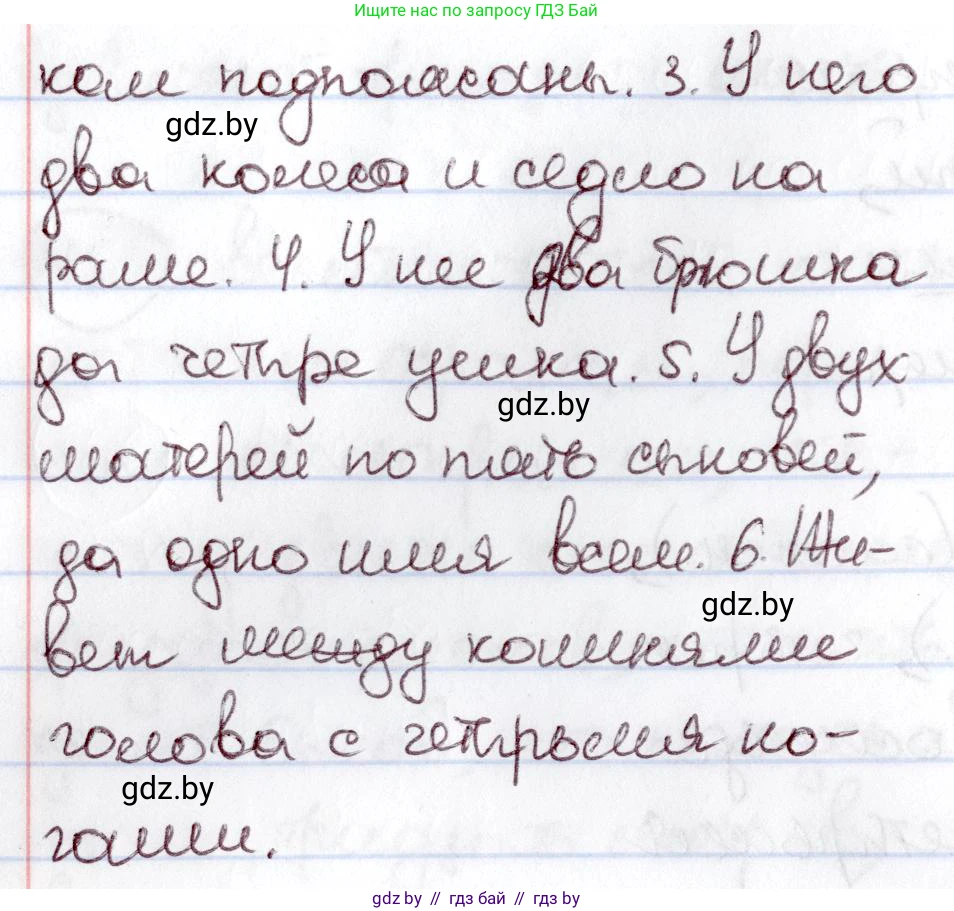 Ищите нас по запросу ГДЗ Бай
ком подпоясаны. 3. У него
gdz.by
два колеса и седло на
раме. 4. У нее два брюшка
да четыре ушка. 5. У двух
gdz.by
матерей по пять сыновей,
да одно имя всем. 6. Жи-
gdz.by
вет между камнями
голова с четырьмя но-
gdz.by
гами.
gdz.by // гдз бай // гдз by